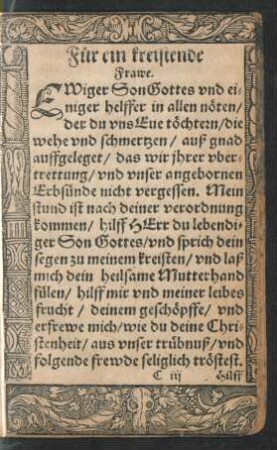 Für ein kreistende
Frawe.
EWiger Son Gottes vnd ei-
niger helffer in allen nöten/
der du vns Eue töchtern/die
wehe vnd schmertzen / auß gnad
auffgeleget / das wir jhrer vber-
trettung/ vnd vnser angebornen
Erbsünde nicht vergessen. Mein
stund ist nach deiner verordnung
kommen/ hilff HErr du lebendi-
ger Son Gottes/vnd sprich dein
segen zu meinem kreisten/ vnd laß
mich dein heilsame Mutterhand
fülen/ hilff mir vnd meiner leibes
frucht / deinem geschöpffe/ vnd
erfrewe mich/wie du deine Chri-
stenheit/ aus vnser trübnuß/ vnd
folgende frewde seliglich tröstest.
C iij Hilff